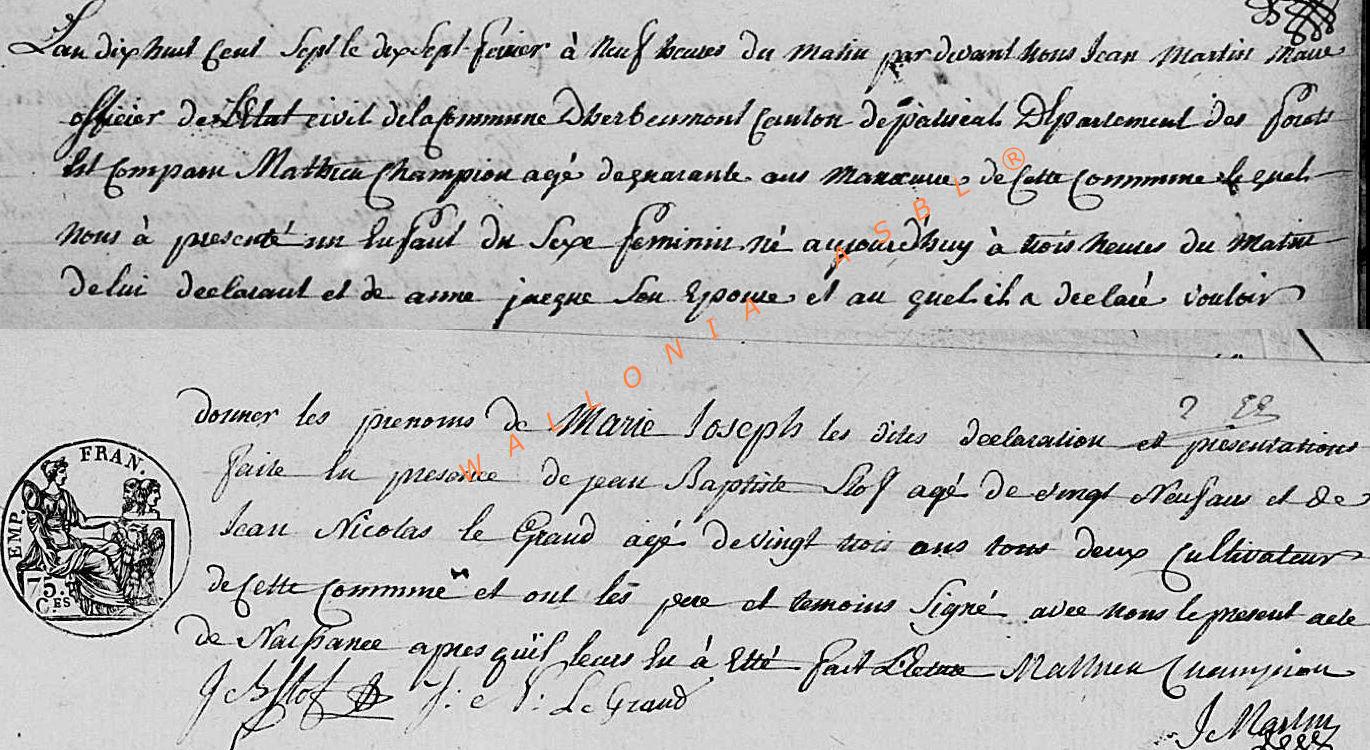 Lan dix huit Cent Sept le dix Sept fevrier à Neuf heures du Matin par devant Nous Jean Martin Maire
officier de L'Etat civil de la Commune Dherbeumont Canton de paliseul Département des forets
Est Comparu Mathieu Champion agé de quarante ans Manœuvre de Cette Commune le quel
Nous à presenté un Enfant du Sexe feminin né aujourdhuy à trois heures du Matin
De lui declarant et de anne jacque Son Epouse et au quel il a declaré vouloir
donner les prenoms de Marie Joseph les dites declaration et présentations
faite En presence de jean Baptiste Slof agé de vingt Neuf ans et de
Jean Nicolas le Grand agé de vingt trois ans tous deux Cultivateur
de Cette Commune et ont les pere et temoins Signé avec nous le present acte
de Naissance apres qu'il leurs En à Etté fait Lecture Mathieu Champion
J B Slof J: N: Le Grand
J Martin
EMP. FRAN.
75. CES
WALLONIA ASBL ®